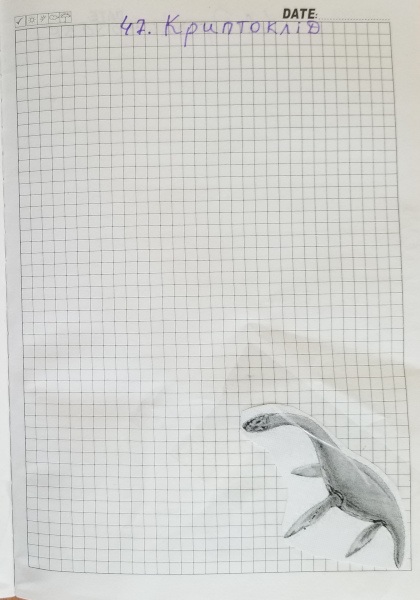 DATE:
47. Криптоклід